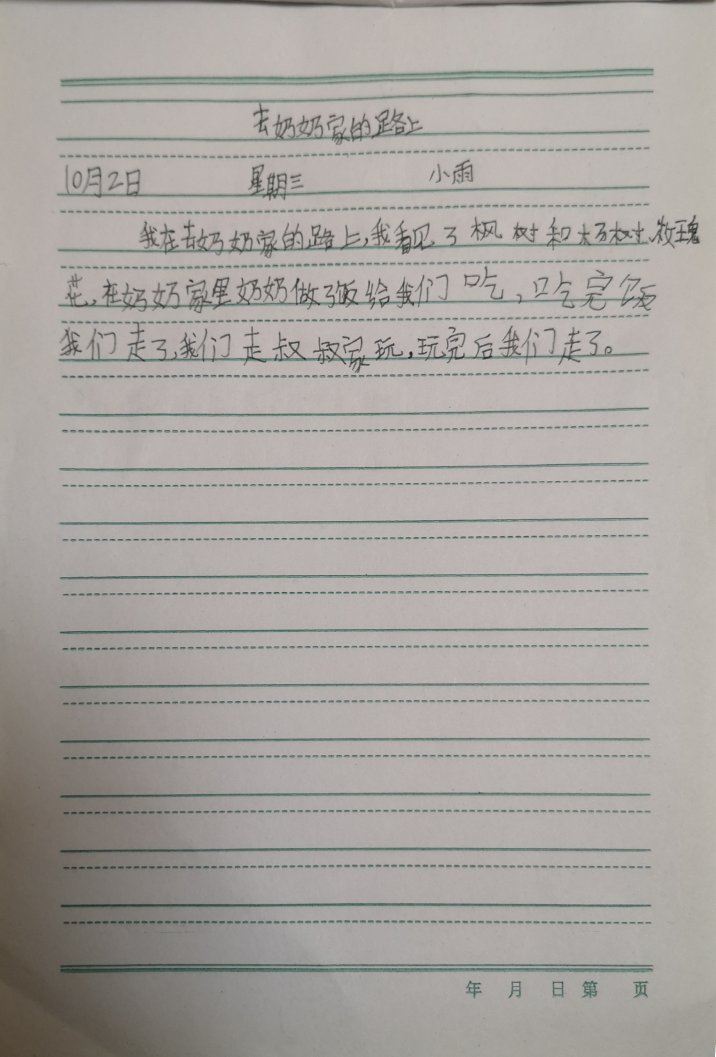 去奶奶家的路上
10月2日 星期三 小雨
我在去奶奶家的路上,我看见了枫树和杨树、玫瑰
花。在奶奶家里奶奶做了饭给我们吃,吃完饭
我们走了,我们走叔叔家玩,玩完后我们走了。
年 月 日 第 页